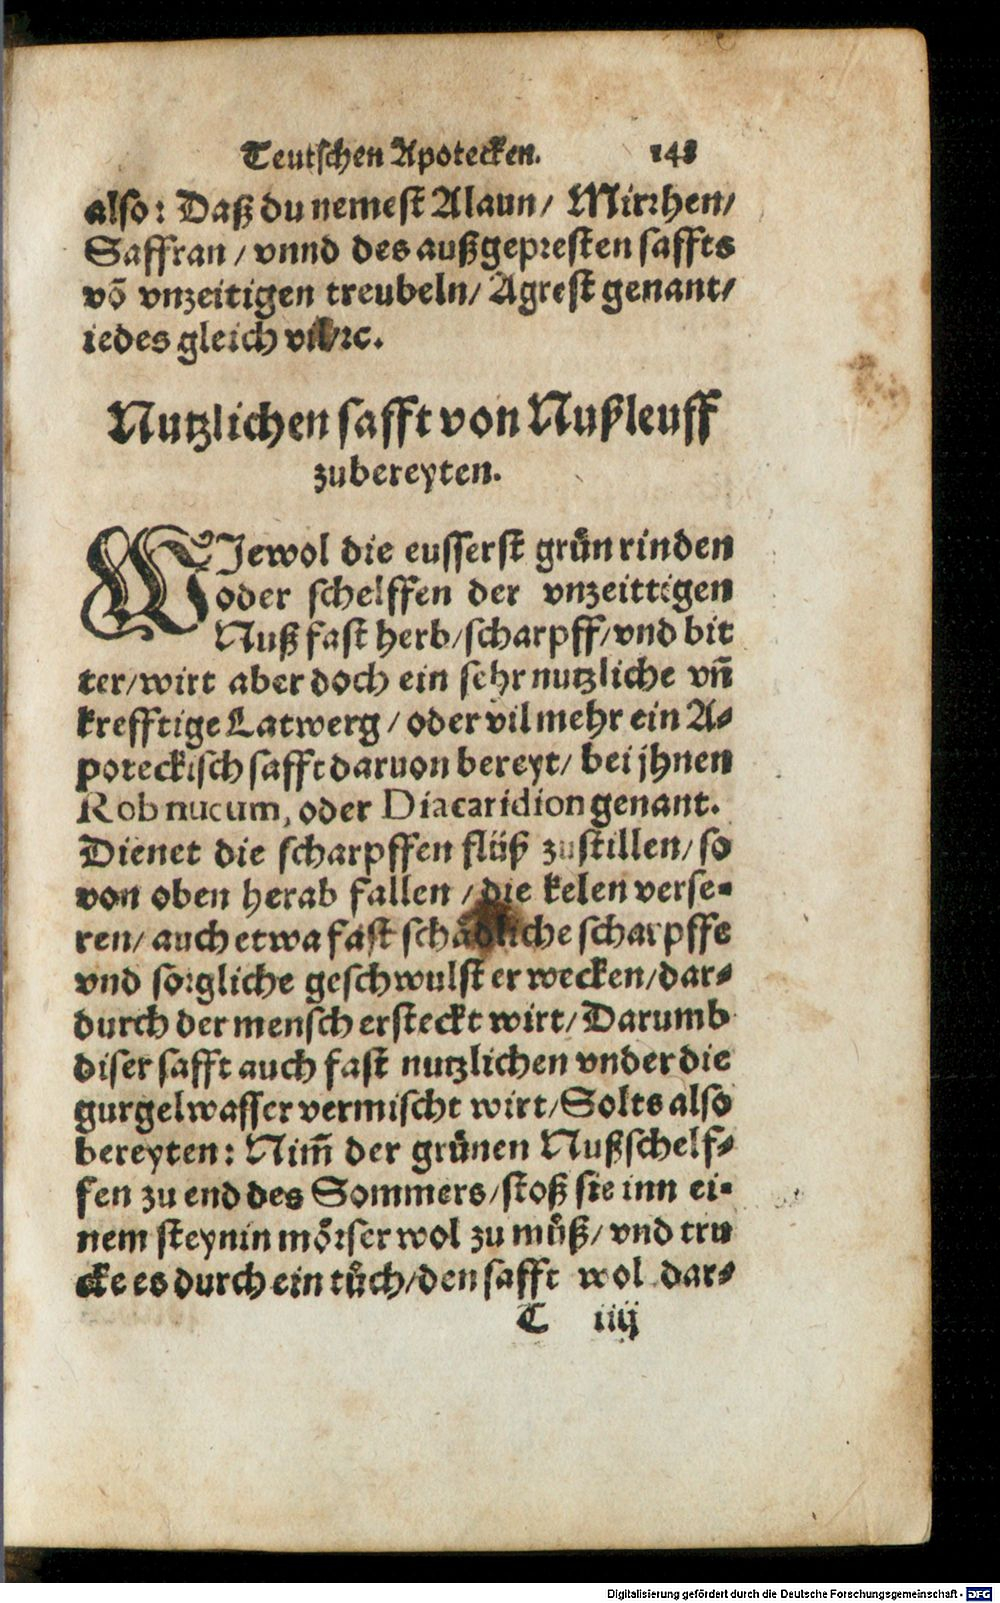 Teutschen Apotecken. 148
also: Daß du nemest Alaun/ Mirrhen/
Saffran/ vnnd des außgepresten saffts
võ vnzeitigen treubeln/ Agrest genant/
iedes gleich vil/ꝛc.
Nutzlichen safft von Nußleuff
zubereyten.
WJewol die eusserst grün rinden
oder schelffen der vnzeittigen
Nuß fast herb/scharpff/vnd bit
ter/wirt aber doch ein sehr nutzliche vñ
krefftige Latwerg/ oder vil mehr ein A-
poteckisch safft daruon bereyt/ bei jhnen
Rob nucum, oder Diacaridion genant.
Dienet die scharpffen flüß zustillen/ so
von oben herab fallen/ die kelen verse-
ren/ auch etwa fast schädliche scharpffe
vnd sorgliche geschwulst erwecken/dar-
durch der mensch ersteckt wirt/ Darumb
diser safft auch fast nutzlichen vnder die
gurgelwasser vermischt wirt/ Solts also
bereyten: Nim̃ der grünen Nußschelf-
fen zu end des Sommers/stoß sie inn ei-
nem steynin mörser wol zu můß/ vnd tru
cke es durch ein tůch/den safft wol dar-
T iiij
Digitalisierung gefördert durch die Deutsche Forschungsgemeinschaft - DFG